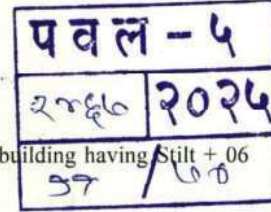 प व ल - ५
२४६७ २०२५
building having Stilt + 06